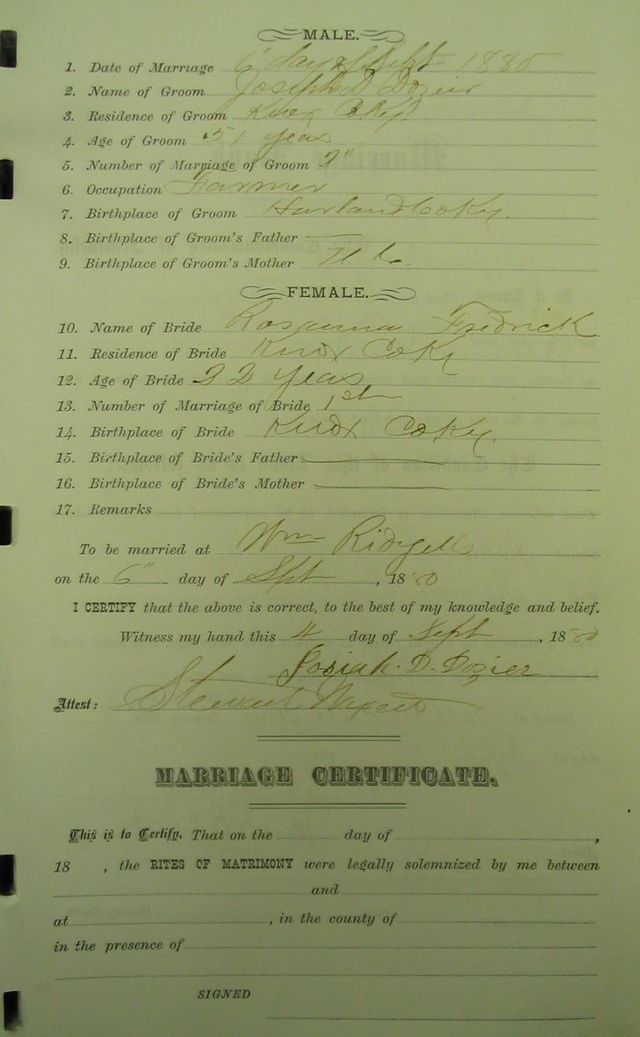 MALE.
1. Date of Marriage 6" day of Sept 1880
2. Name of Groom Joseph D Dozier
3. Residence of Groom Knox Co Ky
4. Age of Groom 51 years
5. Number of Marriage of Groom 2"
6. Occupation Farmer
7. Birthplace of Groom Harland Co Ky.
8. Birthplace of Groom's Father
9. Birthplace of Groom's Mother N. C.
FEMALE.
10. Name of Bride Rosanna Fredrick
11. Residence of Bride Knox Co Ky
12. Age of Bride 22 years
13. Number of Marriage of Bride 1st
14. Birthplace of Bride Knox Co Ky.
15. Birthplace of Bride's Father
16. Birthplace of Bride's Mother
17. Remarks
To be married at Wm Ridgell
on the 6" day of Sept , 1880
I CERTIFY that the above is correct, to the best of my knowledge and belief.
Witness my hand this 4 day of Sept , 1880
Josiah. D. Dozier
Attest: Stewart
MARRIAGE CERTIFICATE.
This is to Certify. That on the day of ,
18 , the RITES OF MATRIMONY were legally solemnized by me between
and
at , in the county of
in the presence of
SIGNED